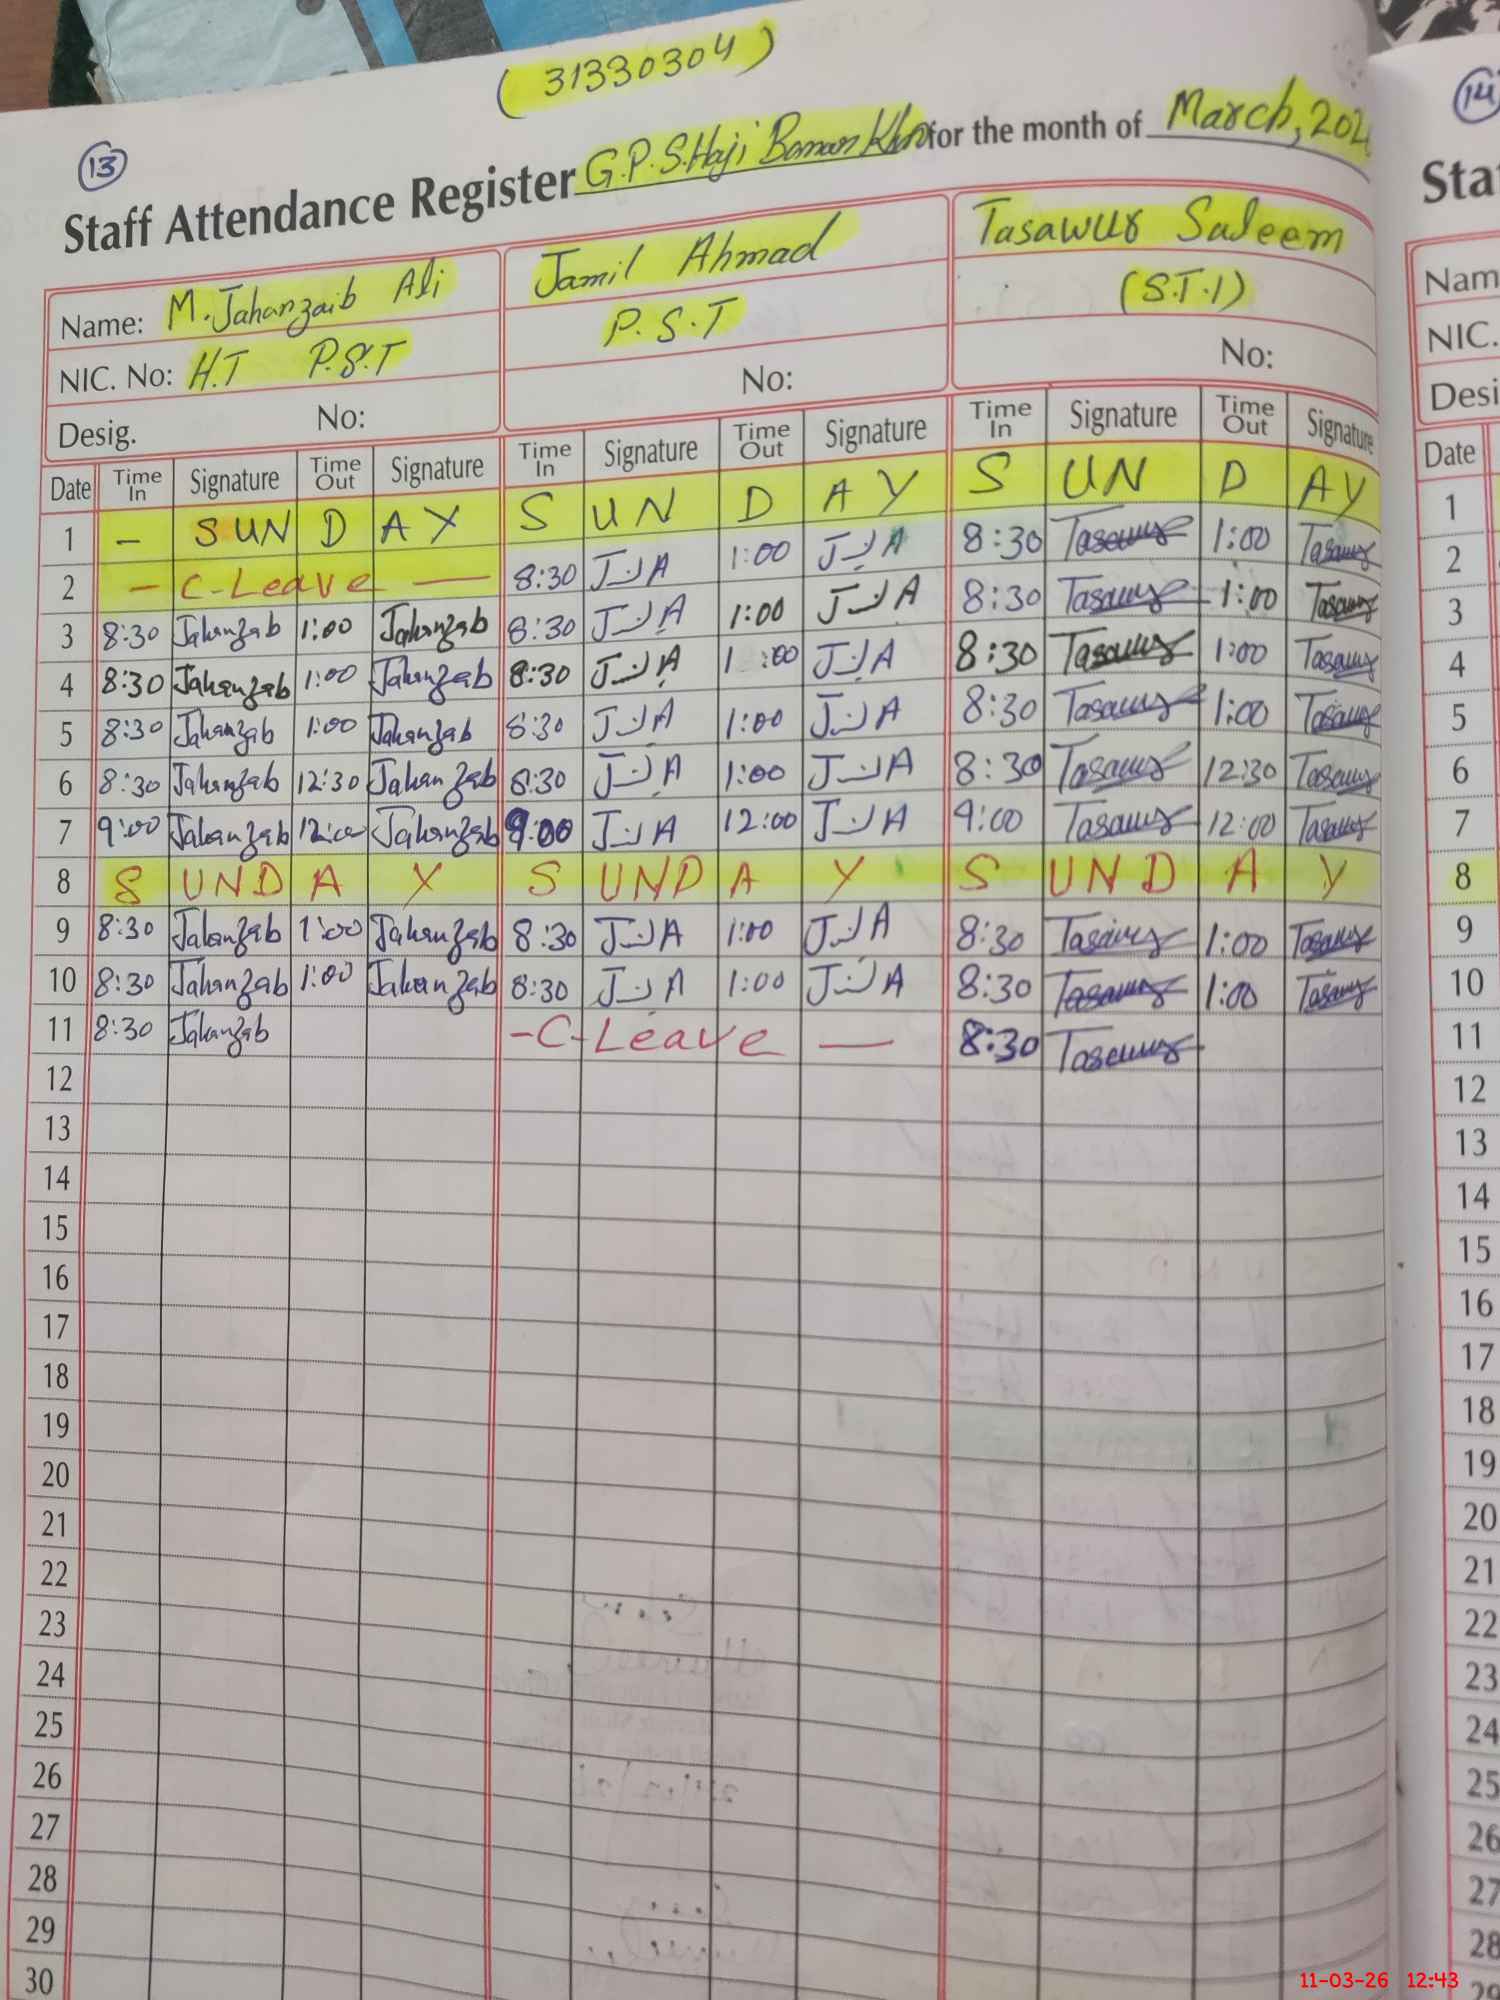 (31330304)
13
Staff Attendance Register G.P.S. Haji Baman Khan for the month of March, 202
Name: M. Jahanzaib Ali Jamil Ahmad Tasawur Saleem
NIC. No: H.T P.S.T P.S.T (S.T.I)
Desig. No: No: No:
Date Time In Signature Time Out Signature Time In Signature Time Out Signature Time In Signature Time Out Signature
1 - SUNDAY SUNDAY SUNDAY
2 - C-Leave — 8:30 1:00 8:30 Tasawur 1:00 Tasawur
3 8:30 Jahanzab 1:00 Jahanzab 8:30 1:00 8:30 Tasawur 1:00 Tasawur
4 8:30 Jahanzab 1:00 Jahanzab 8:30 1:00 8:30 Tasawur 1:00 Tasawur
5 8:30 Jahanzab 1:00 Jahanzab 8:30 1:00 8:30 Tasawur 1:00 Tasawur
6 8:30 Jahanzab 12:30 Jahanzab 8:30 1:00 8:30 Tasawur 12:30 Tasawur
7 9:00 Jahanzab 12:00 Jahanzab 9:00 12:00 9:00 Tasawur 12:00 Tasawur
8 SUNDAY SUNDAY SUNDAY
9 8:30 Jahanzab 1:00 Jahanzab 8:30 1:00 8:30 Tasawur 1:00 Tasawur
10 8:30 Jahanzab 1:00 Jahanzab 8:30 1:00 8:30 Tasawur 1:00 Tasawur
11 8:30 Jahanzab - C-Leave — 8:30 Tasawur
12
13
14
15
16
17
18
19
20
21
22
23
24
25
26
27
28
29
30
14
Sta
Nam
NIC.
Desi
Date
1
2
3
4
5
6
7
8
9
10
11
12
13
14
15
16
17
18
19
20
21
22
23
24
25
26
27
28
29
11-03-26 12:43